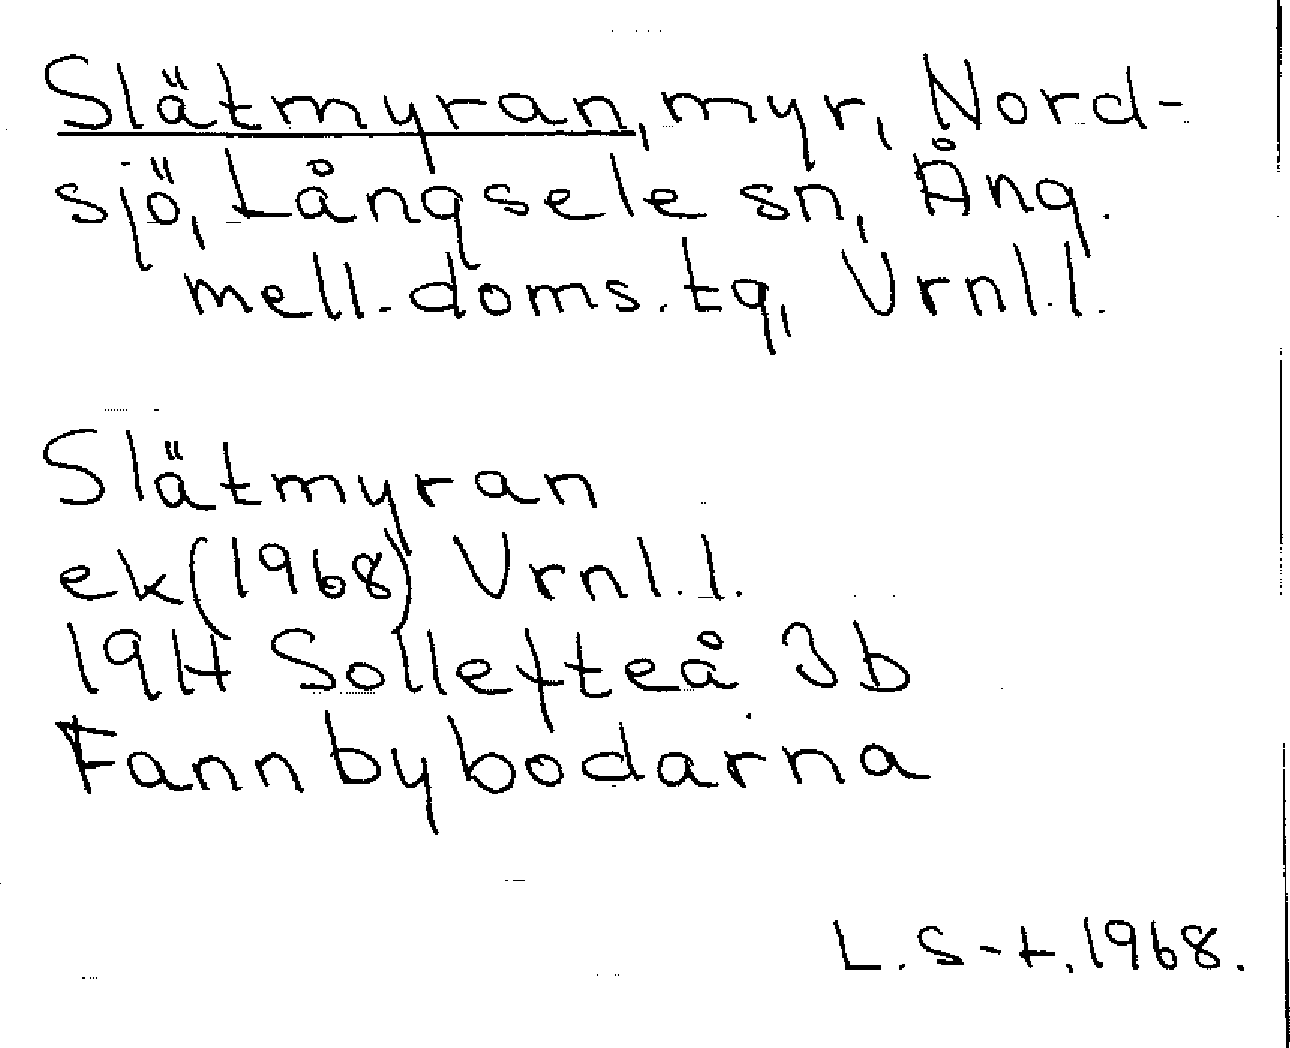 Slätmyran, myr, Nord-
sjö, Långsele sn, Ång.
mell. doms. tg, Vrnl.l.
Slätmyran
ek(1968) Vrnl.l.
19H Sollefteå 3b
Fannbybodarna
L. S-t. 1968.